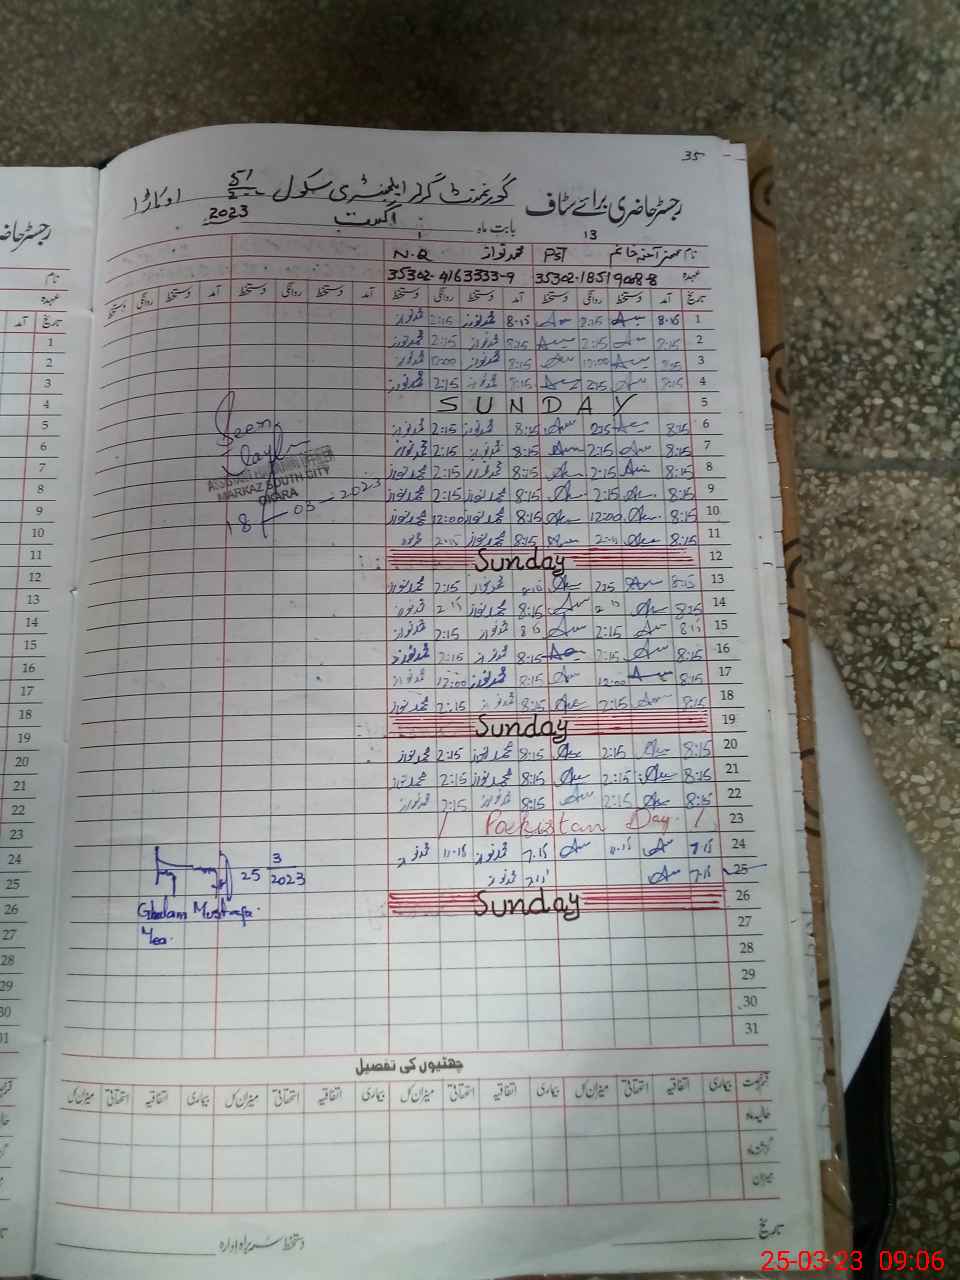 35
رجسٹر حاضری برائے سٹاف گورنمنٹ گرلز ایلیمنٹری سکول 51/2-L اوکاڑا
بابت ماہ اگست 2023
13 1
نام PST محمد نواز N.Q
عہدہ 35302-1851908-8 35302-4163333-9
تاریخ آمد دستخط روانگی دستخط آمد دستخط روانگی دستخط آمد دستخط روانگی دستخط آمد دستخط روانگی دستخط
1 8-15 2:15 8-15 محمد نواز 2:15 محمد نواز
2 8:15 2:15 8:15 محمد نواز 2:15 محمد نواز
3 8:15 12:00 8:15 محمد نواز 12:00 محمد نواز
4 8:15 2:15 8:15 محمد نواز 2:15 محمد نواز
5 SUNDAY
6 8:15 2:15 8:15 محمد نواز 2:15 محمد نواز
7 8:15 2:15 8:15 محمد نواز 2:15 محمد نواز
8 8:15 2:15 8:15 محمد نواز 2:15 محمد نواز
9 8:15 2:15 8:15 محمد نواز 2:15 محمد نواز
10 8:15 12:00 8:15 محمد نواز 12:00 محمد نواز
11 8:15 2:15 8:15 محمد نواز 2:15
12 Sunday
13 8:15 2:15 8:15 محمد نواز 2:15 محمد نواز
14 8:15 2:15 8:15 محمد نواز 2:15 محمد نواز
15 8:15 2:15 8:15 محمد نواز 2:15 محمد نواز
16 8:15 2:15 8:15 محمد نواز 2:15 محمد نواز
17 8:15 12:00 8:15 محمد نواز 12:00 محمد نواز
18 8:15 2:15 8:15 محمد نواز 2:15 محمد نواز
19 Sunday
20 8:15 2:15 8:15 محمد نواز 2:15 محمد نواز
21 8:15 2:15 8:15 محمد نواز 2:15 محمد نواز
22 8:15 2:15 8:15 محمد نواز 2:15 محمد نواز
23 Pakistan Day
24 7-15 11-15 7-15 محمد نواز 11-15 محمد نواز
25 7-15 محمد نواز
26 Sunday
27
28
29
30
31
Seen
MARKAZ SOUTH CITY
OKARA
18-03-2023
25 3 2023
Ghulam Mustafa
Mea.
چھٹیوں کی تفصیل
بیماری اتفاقیہ استحقاقی میزان کل بیماری اتفاقیہ استحقاقی میزان کل بیماری اتفاقیہ استحقاقی میزان کل بیماری اتفاقیہ استحقاقی میزان کل
حالیہ ماہ
گزشتہ ماہ
میزان
تاریخ دستخط سربراہ ادارہ
رجسٹر حاضری
نام
عہدہ
تاریخ آمد
1
2
3
4
5
6
7
8
9
10
11
12
13
14
15
16
17
18
19
20
21
22
23
24
25
26
27
28
29
30
31
25-03-23 09:06